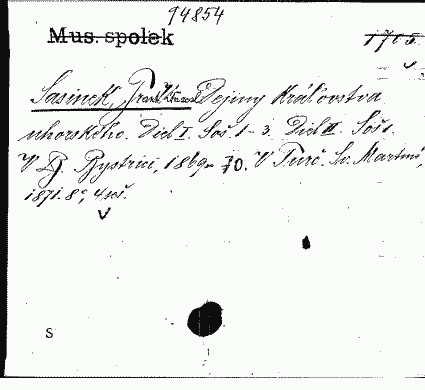 94854
Mus. spolek 1705.
Sasinek, Frant. Vítazosl. Dejiny Kráľovstva
uhorského. Diel I. Soš. 1-3. Diel II. Soš 1.
V B. Bystrici, 1869-70. V Turč. Sv. Martine,
1871. 8°, 4 soš.
S